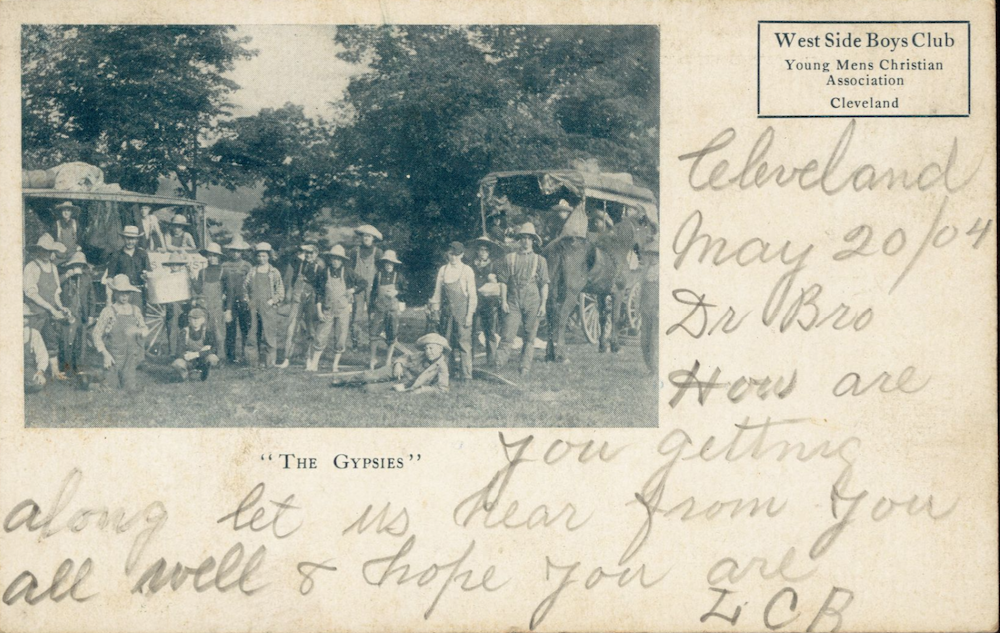 West Side Boys Club
Young Mens Christian
Association
Cleveland
Cleveland
May 20/04
Dr Bro
How are
you getting
"The Gypsies"
along let us hear from you
all well & hope you are
L C B